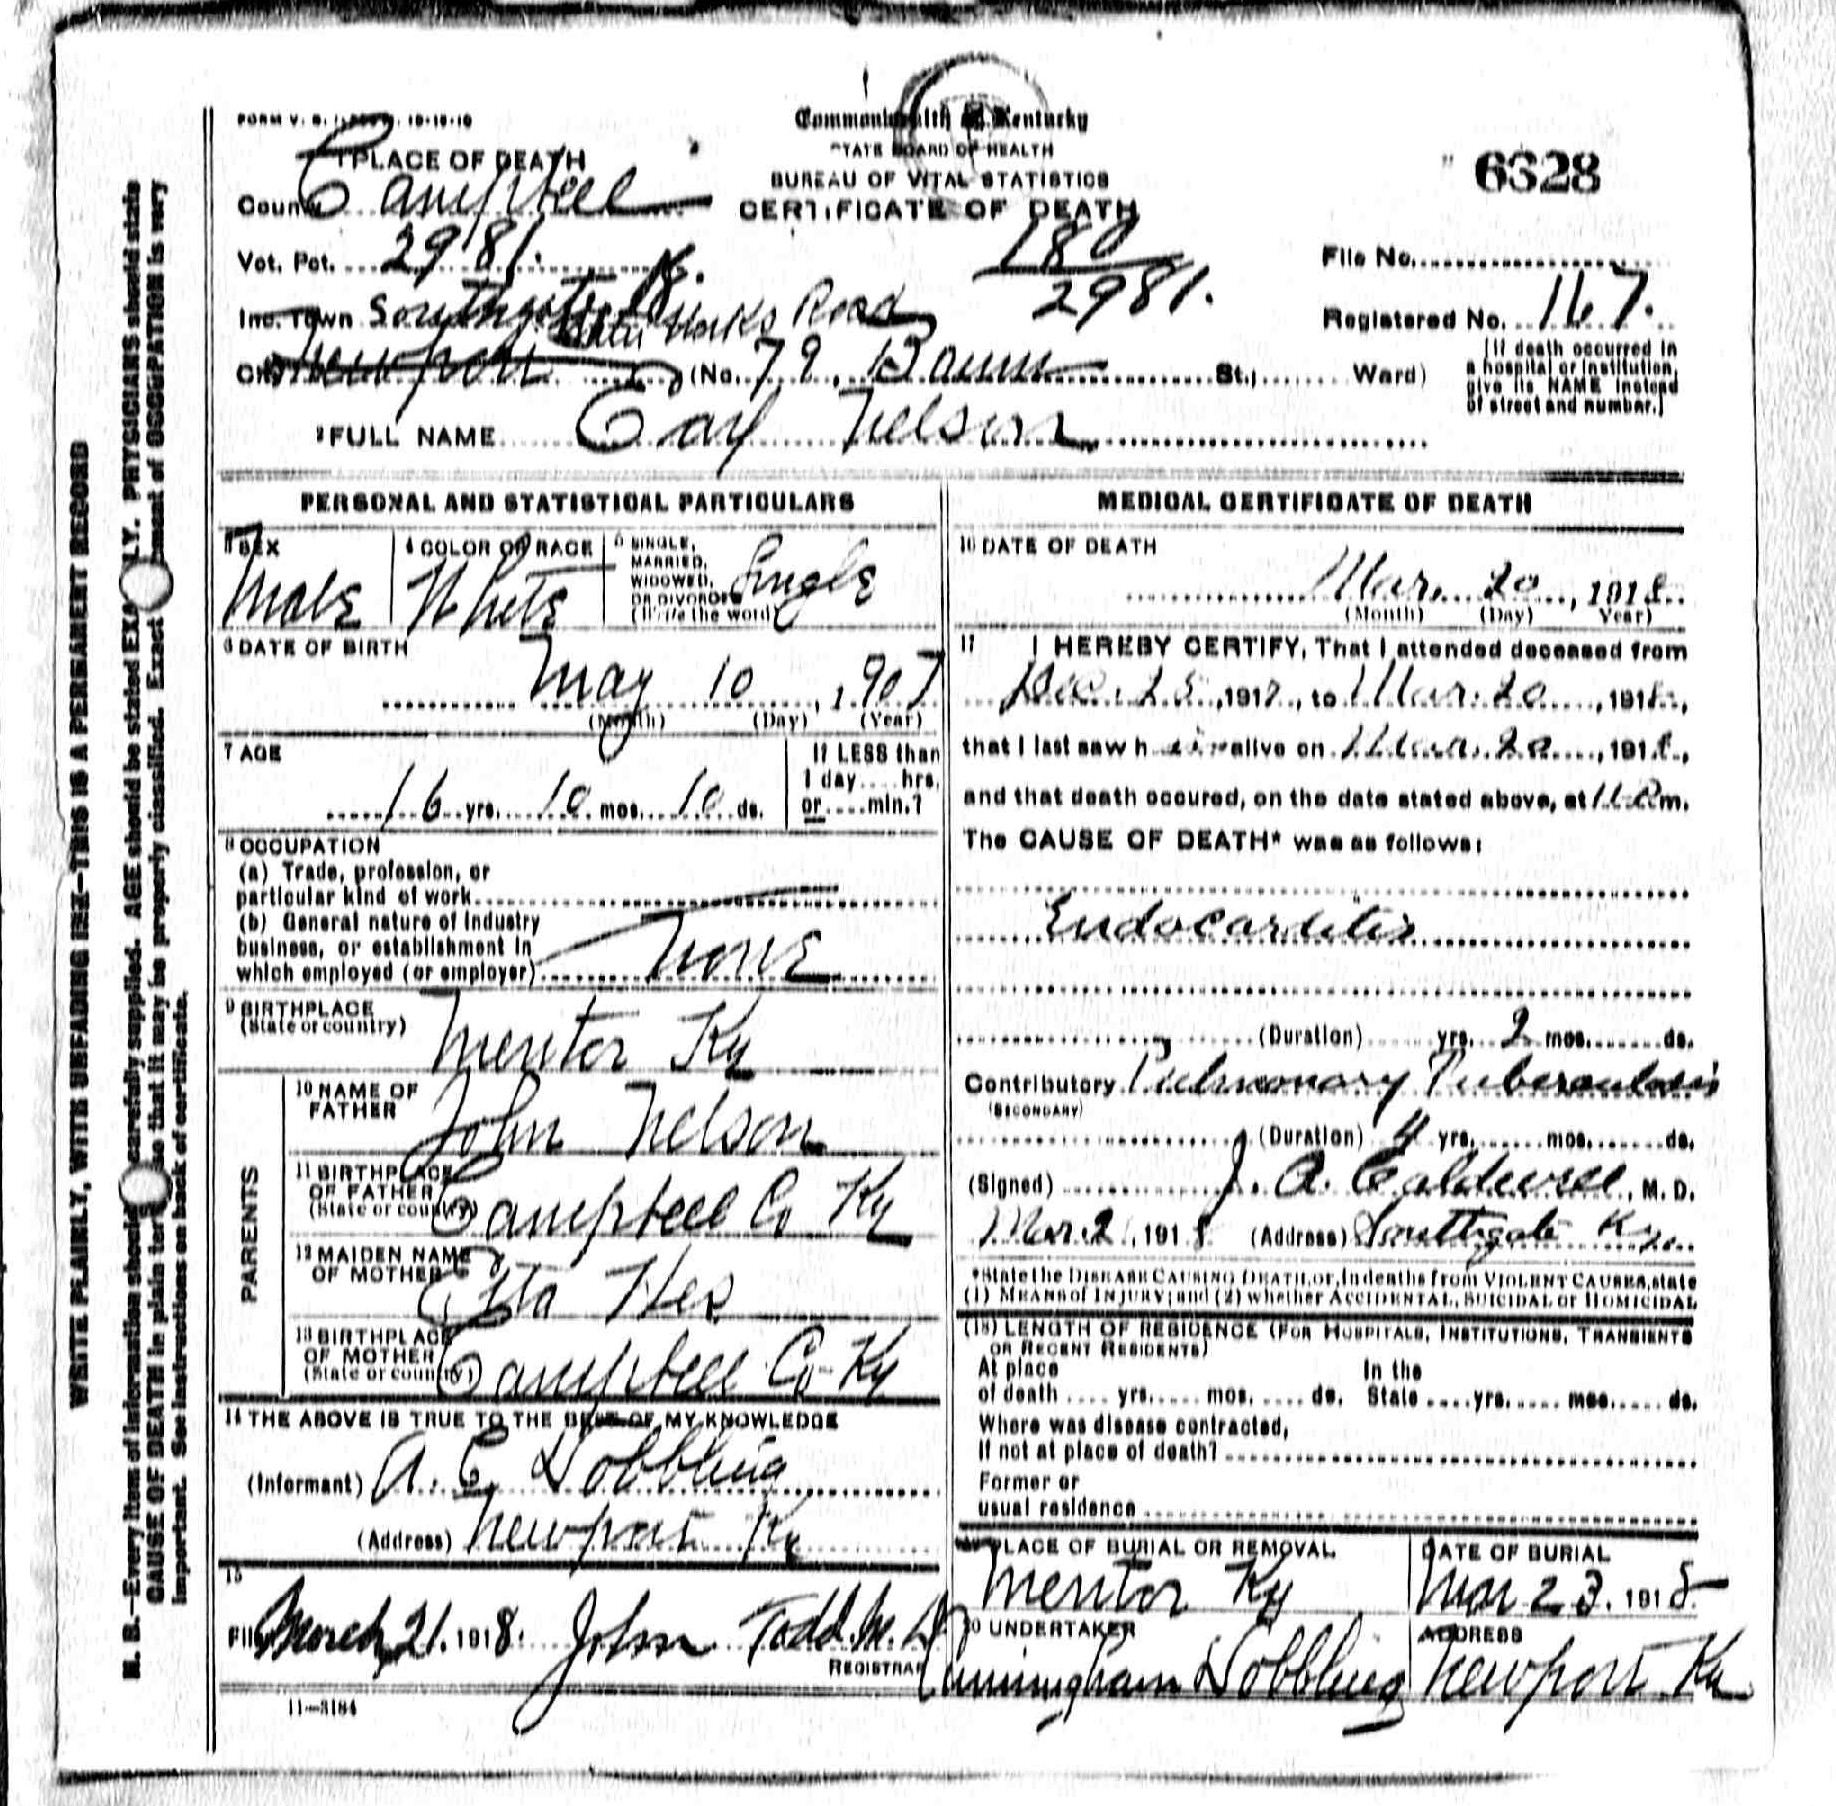 Commonwealth of Kentucky
STATE BOARD OF HEALTH
BUREAU OF VITAL STATISTICS
CERTIFICATE OF DEATH
6328
1 PLACE OF DEATH
County Campbell
Vot. Pct. 2981.
180
2981.
File No.
Inc. Town Southgate K.
Water Works Road
Registered No. 167.
City Newport (No. 79, St., Ward)
(If death occurred in a hospital or institution, give its NAME instead of street and number.)
2 FULL NAME Nelson
PERSONAL AND STATISTICAL PARTICULARS
3 SEX Male
4 COLOR OR RACE White
5 SINGLE, MARRIED, WIDOWED, OR DIVORCED (Write the word) Single
6 DATE OF BIRTH
May 10, 1907
(Month) (Day) (Year)
7 AGE
16 yrs. 10 mos. 10 ds.
If LESS than 1 day.... hrs. or.... min.?
8 OCCUPATION
(a) Trade, profession, or
particular kind of work
(b) General nature of industry
business, or establishment in
which employed (or employer) None
9 BIRTHPLACE
(State or country) Mentor Ky
PARENTS
10 NAME OF FATHER John Nelson
11 BIRTHPLACE OF FATHER (State or country) Campbell Co Ky
12 MAIDEN NAME OF MOTHER Etta
13 BIRTHPLACE OF MOTHER (State or country) Campbell Co Ky
14 THE ABOVE IS TRUE TO THE BEST OF MY KNOWLEDGE
(Informant) A. C. Dobbling
(Address) Newport Ky
15
Filed March 21. 1918. John Todd M. D
REGISTRAR
11—3184
MEDICAL CERTIFICATE OF DEATH
16 DATE OF DEATH
Mar. 20, 1918
(Month) (Day) (Year)
17 I HEREBY CERTIFY, That I attended deceased from
Dec. 25, 1917, to Mar. 20, 1918,
that I last saw him alive on Mar. 20, 1918,
and that death occured, on the date stated above, at 11 P m.
The CAUSE OF DEATH* was as follows:
Endocarditis
(Duration) yrs. 2 mos. ds.
Contributory Pulmonary Tuberculosis
(SECONDARY)
(Duration) 4 yrs. mos. ds.
(Signed) J. A. Caldwell, M. D.
Mar. 21, 1918 (Address) Southgate Ky.
*State the DISEASE CAUSING DEATH, or, in deaths from VIOLENT CAUSES, state
(1) MEANS of INJURY; and (2) whether ACCIDENTAL, SUICIDAL or HOMICIDAL
(18) LENGTH OF RESIDENCE (FOR HOSPITALS, INSTITUTIONS, TRANSIENTS
OR RECENT RESIDENTS)
At place of death .... yrs. .... mos. .... ds. In the State .... yrs. .... mos. .... ds.
Where was disease contracted,
if not at place of death?
Former or
usual residence
19 PLACE OF BURIAL OR REMOVAL
Mentor Ky
DATE OF BURIAL
Mar 23, 1918
20 UNDERTAKER
Cunningham Dobbling
ADDRESS
Newport Ky
WRITE PLAINLY, WITH UNFADING INK—THIS IS A PERMANENT RECORD
N. B.—Every item of information should carefully supplied. AGE should be stated EXACTLY. PHYSICIANS should state
CAUSE OF DEATH in plain terms so that it may be properly classified. Exact statement of OCCUPATION is very
important. See instructions on back of certificate.